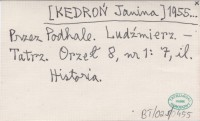 [KEDROŃ Janina] 1955...
Przez Podhale. Ludźmierz. –
Tatrz. Orzeł 8, nr 1: 7, il.
Historia.